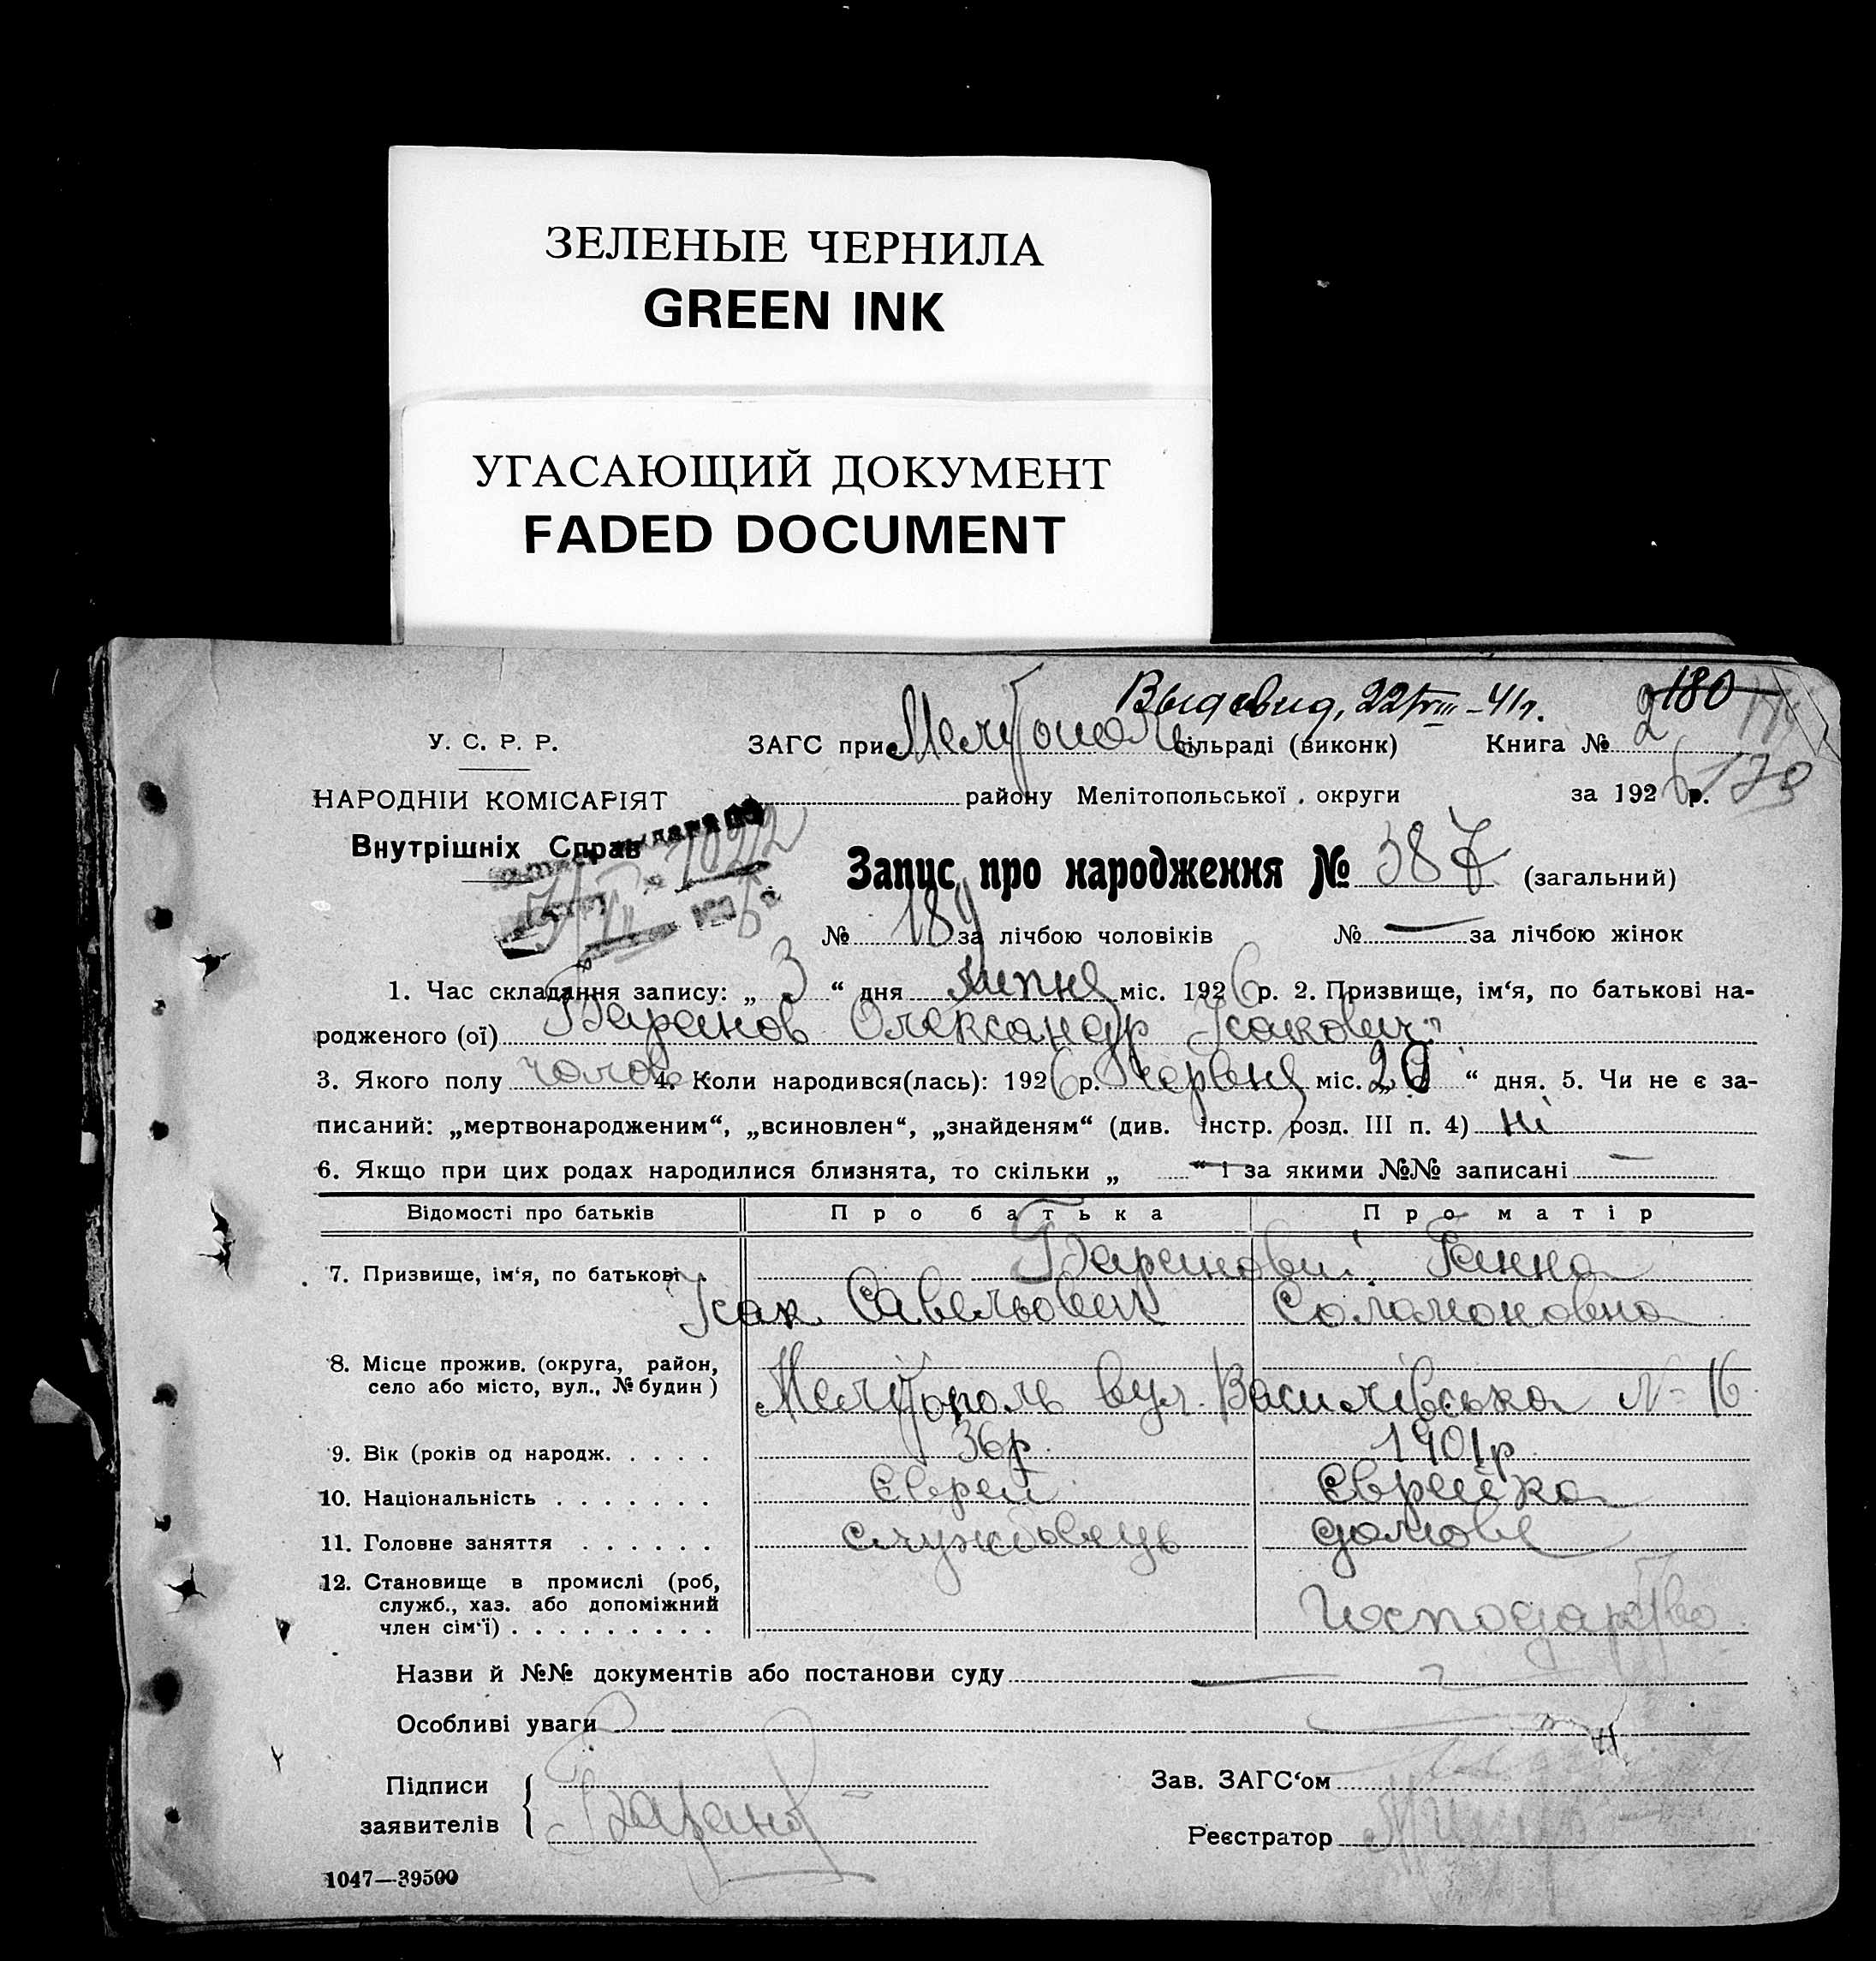 ЗЕЛЕНЫЕ ЧЕРНИЛА
GREEN INK
УГАСАЮЩИЙ ДОКУМЕНТ
FADED DOCUMENT
Выд свид, 22/VIII-41г. 180
У. С. Р. Р. ЗАГС при Мелітополь сільраді (виконк) Книга № 2
НАРОДНІЙ КОМІСАРІЯТ району Мелітопольської округи за 1926 р. 179
Внутрішніх Справ 1022
Запис про народження № 387 (загальний)
№ 189 за лічбою чоловіків № — за лічбою жінок
1. Час складання запису: „ 3 “ дня липня міс. 1926 р. 2. Призвище, ім‘я, по батькові на-
родженого (ої) Баранов Олександр Ісакович
3. Якого полу чолов. 4. Коли народився(лась): 1926 р. червня міс. „ 20 “ дня. 5. Чи не є за-
писаний: „мертвонародженим“, „всиновлен“, „знайденям“ (див. інстр. розд. III п. 4) ні
6. Якщо при цих родах народилися близнята, то скільки „ — “ і за якими №№ записані —
Відомості про батьків Про батька Про матір
7. Призвище, ім‘я, по батькові Баранови Ганна
Ісак Савельович Соломоновна
8. Місце прожив. (округа, район,
село або місто, вул., № будин) Мелітополь вул. Василівська № 16
9. Вік (років од народж. . . . . 36р. 1901р.
10. Національність . . . . . . . Єврей Єврейка
11. Головне заняття . . . . . . службовець домове
12. Становище в промислі (роб,
служб., хаз. або допоміжний
член сім‘ї) . . . . . . . . . господарство
Назви й №№ документів або постанови суду —
Особливі уваги
Підписи Зав. ЗАГС‘ом
заявителів Баранов
Реєстратор
1047—39500